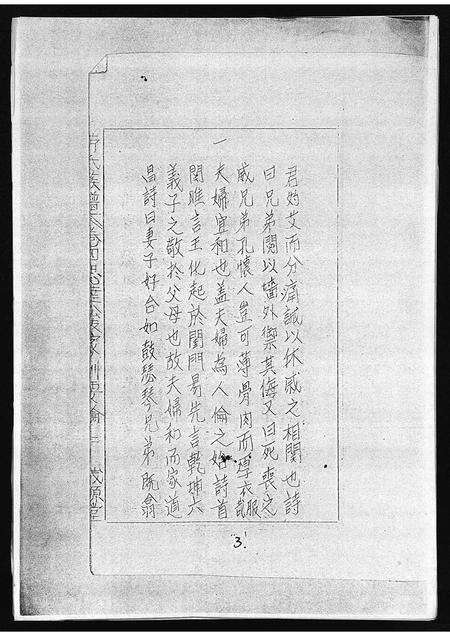 君灼艾而分痛誠以休戚之相關也詩
曰兄弟鬩以墻外禦其侮又曰死喪之
威兄弟孔懷人豈可薄骨肉而厚衣服哉
一夫婦宜和也盖夫婦為人倫之始詩首
関雎言王化起於閨門易先言乾坤六
義子之敬於父母也故夫婦和而家道
昌詩曰妻子好合如鼓瑟琴兄弟既翕
氏族譜
3.